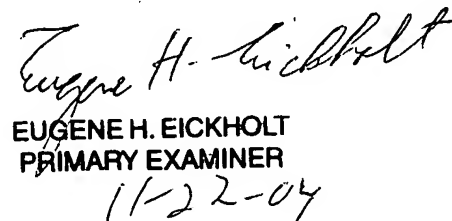 Eugene H. Eickholt
EUGENE H. EICKHOLT
PRIMARY EXAMINER
11-22-04